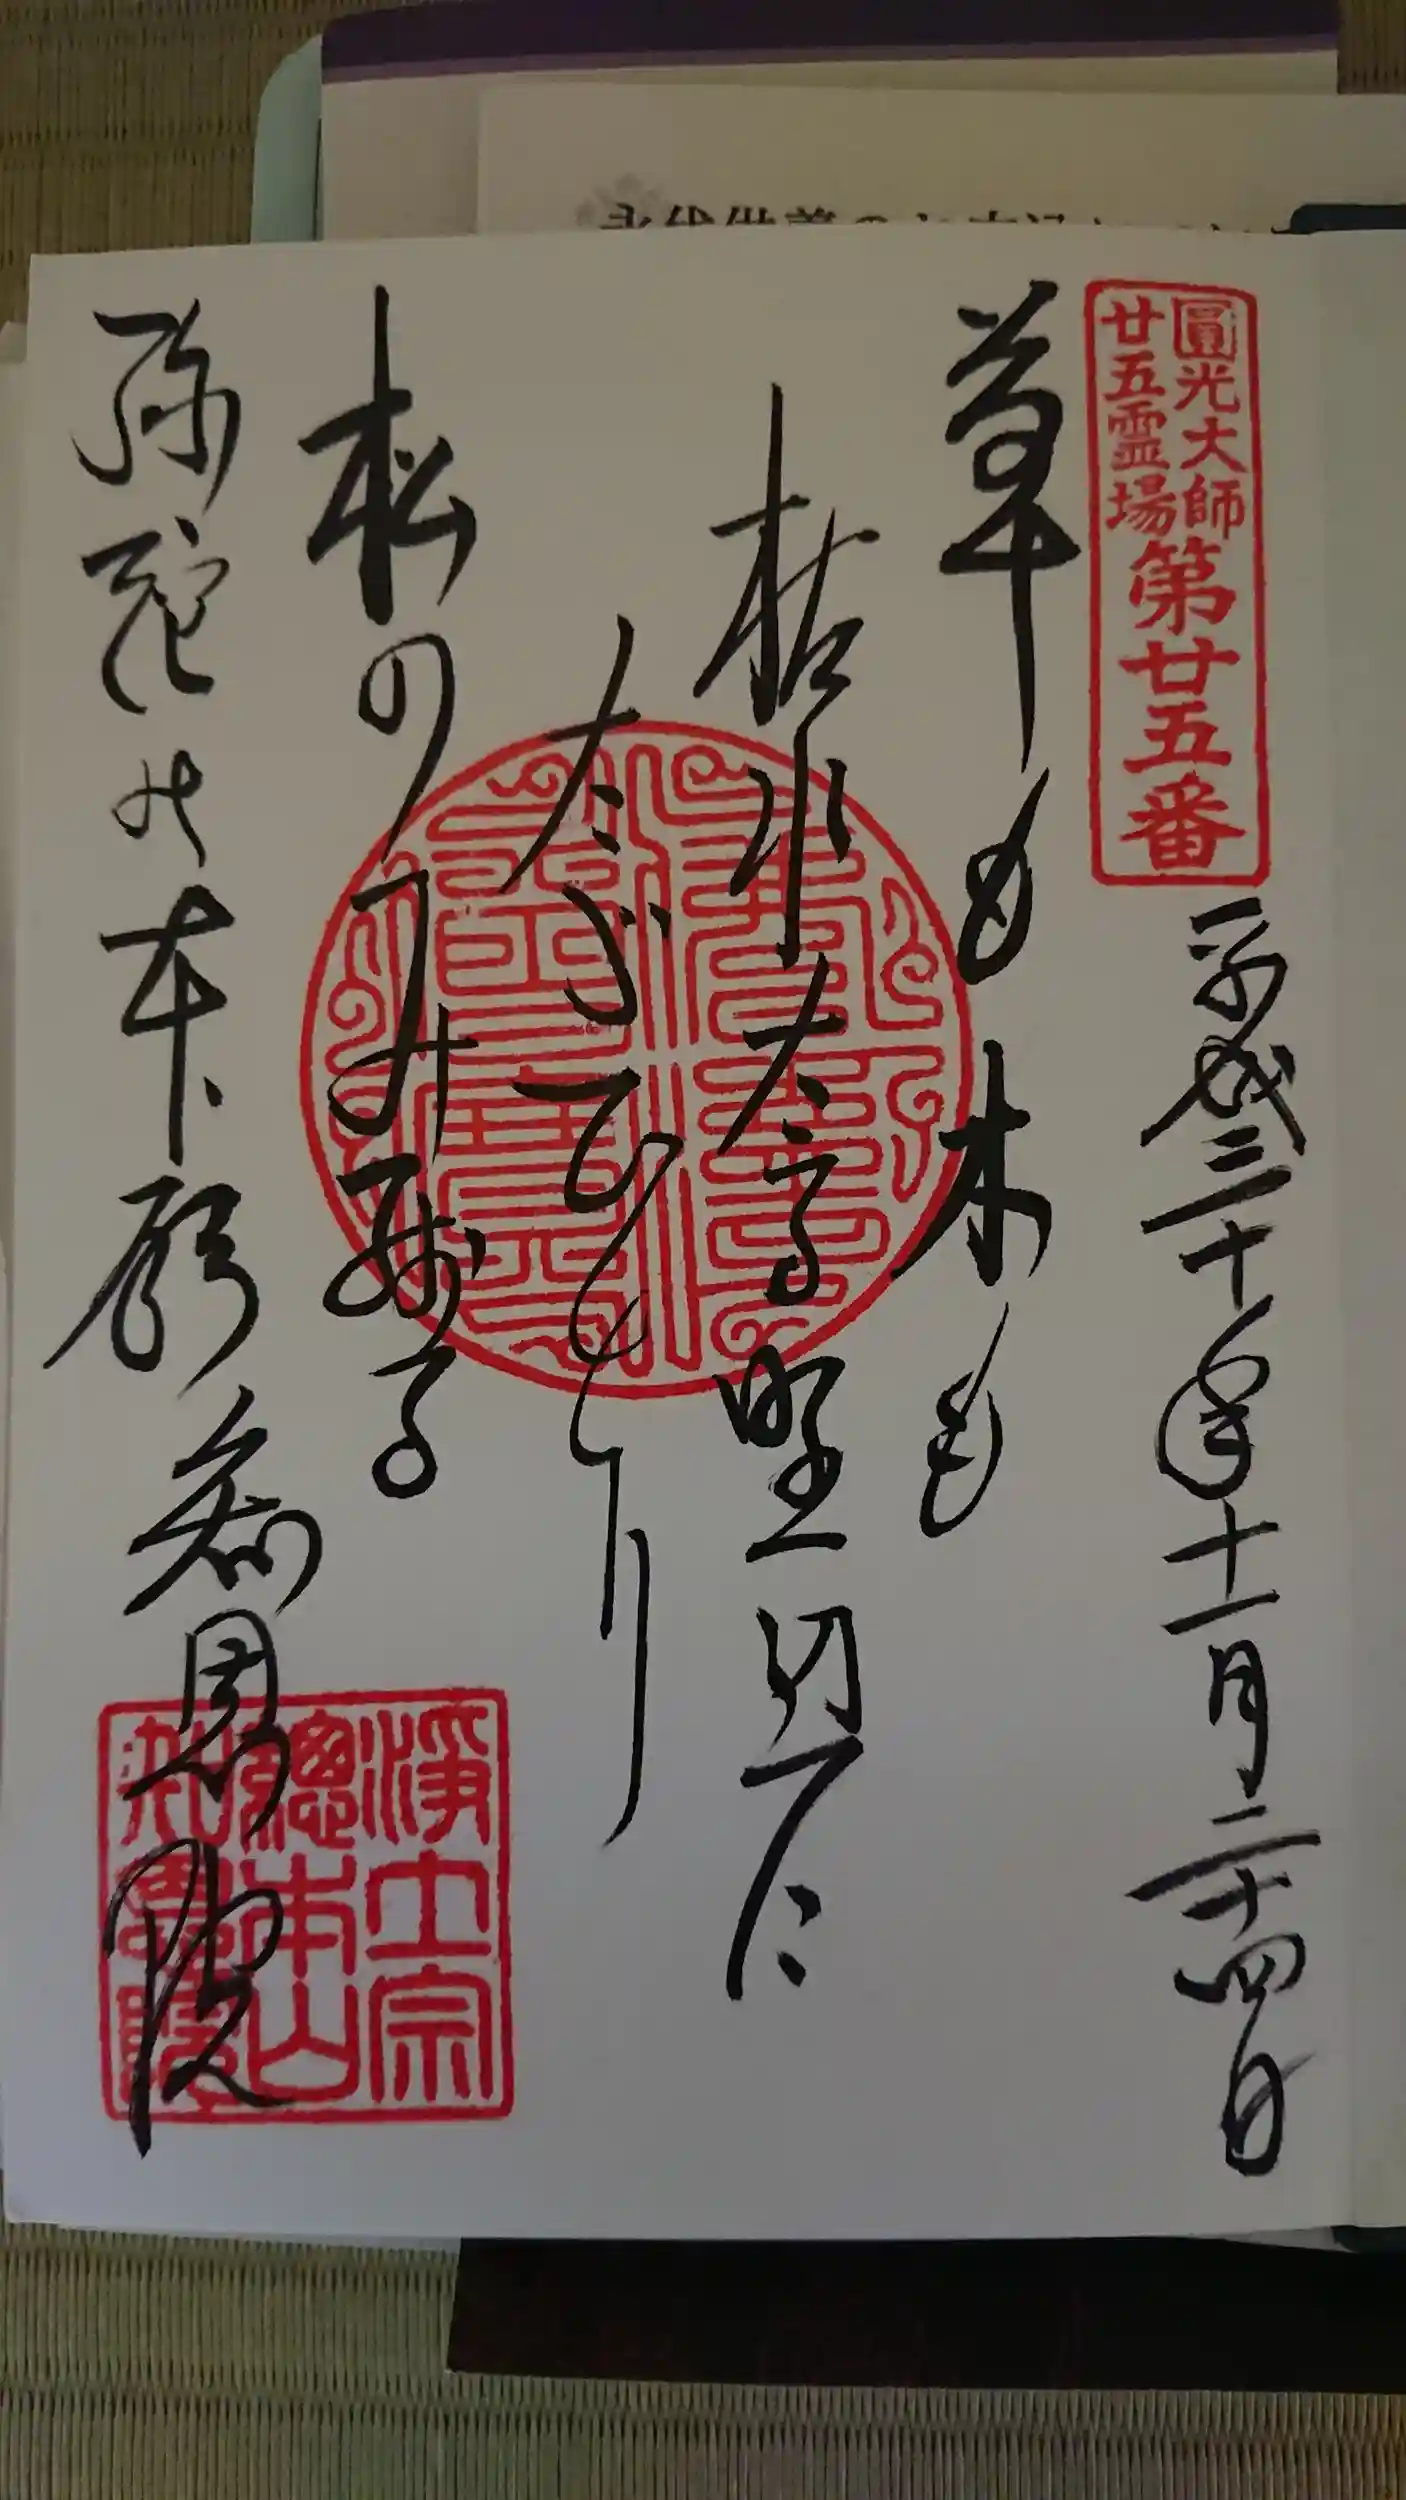 圓光大師
廿五霊場
第廿五番
平成三十年十一月二十四日
草も木も
枯れたる野辺に
たゞひとり
松のみ残る
弥陀の本願
知恩院
淨土宗
總本山
知恩院